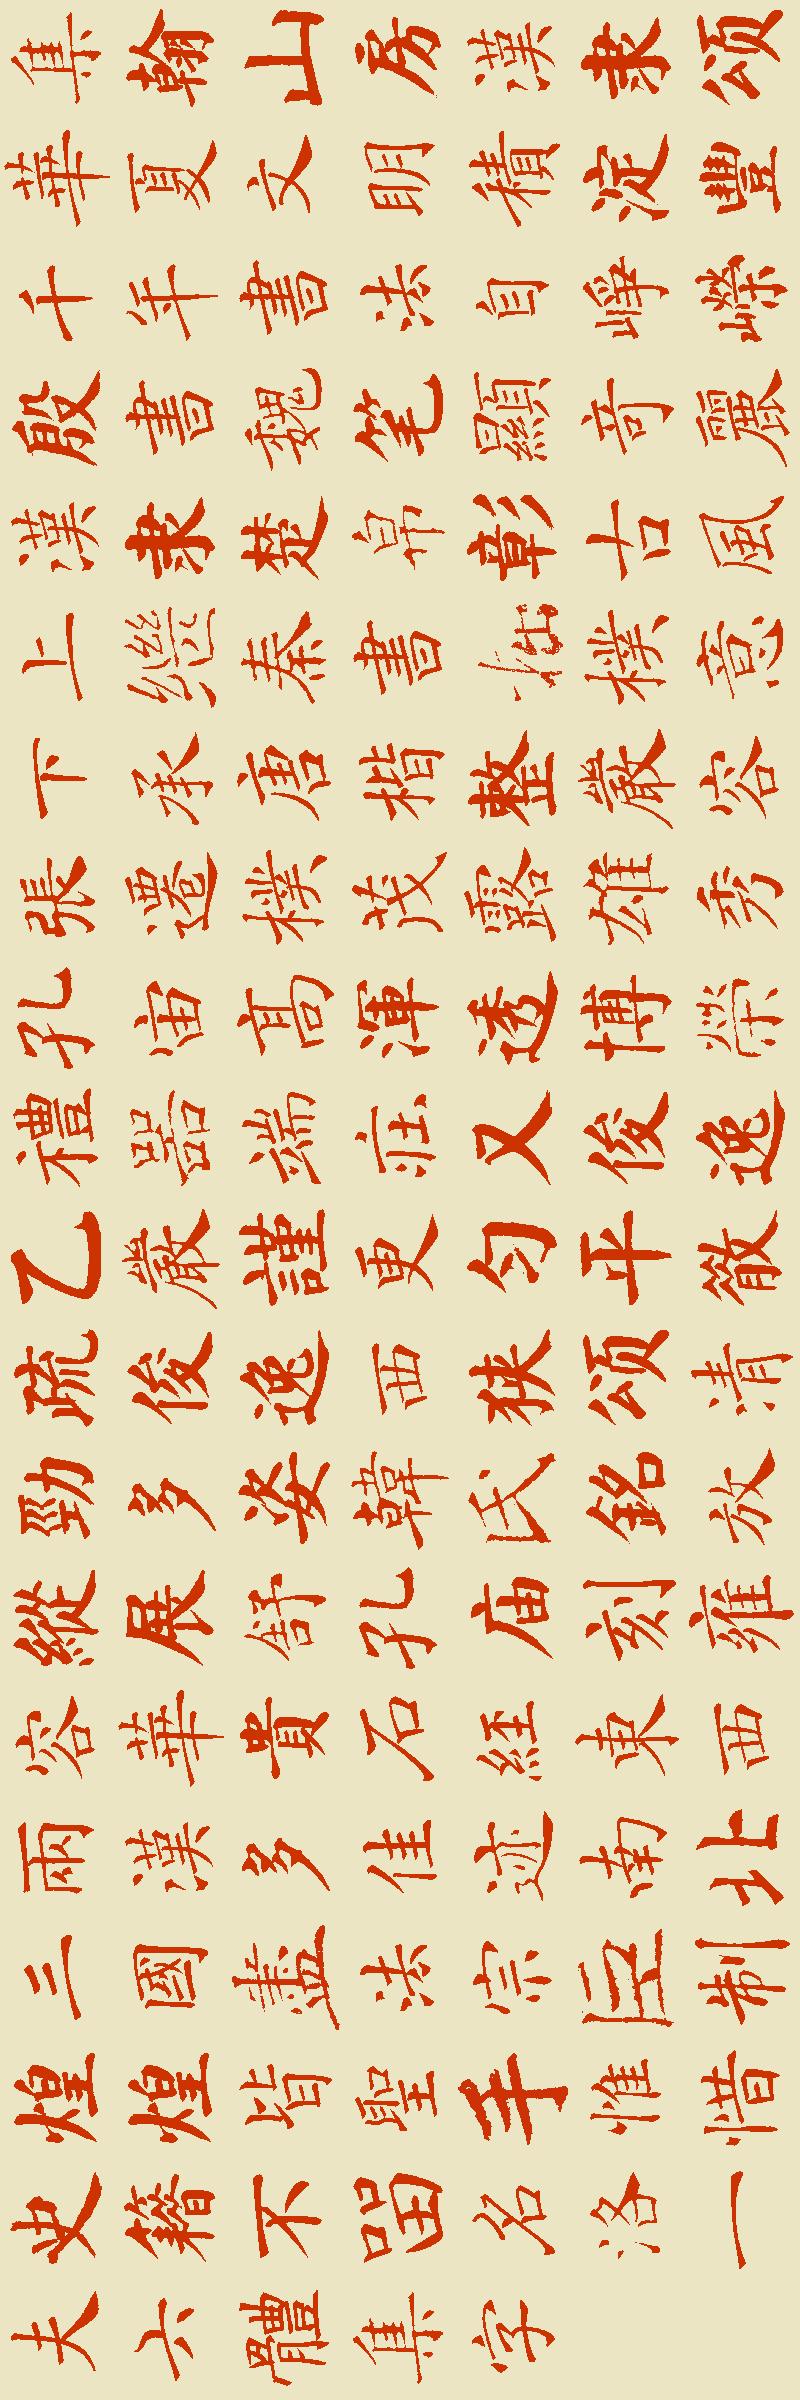 集翰山房漢隸頌
華夏文明積淀豐
千年書法自崢嶸
殷書魏笔顯奇麗
漢隸楚帛彰古風
上繼秦書拙樸意
下承唐楷整嚴容
張遷樸茂露雄秀
孔宙高渾透博榮
禮器端莊又俊逸
乙嚴謹更勻平徹
疏俊逸西狹頌清
勁多姿韓氏銘放
縱展舒孔庙刻雍
容華貴石経東西
兩漢多佳迹南北
三國盡法宗巨制
煌煌皆聖手惟惜
史籍不留名洛一
夫六體集字